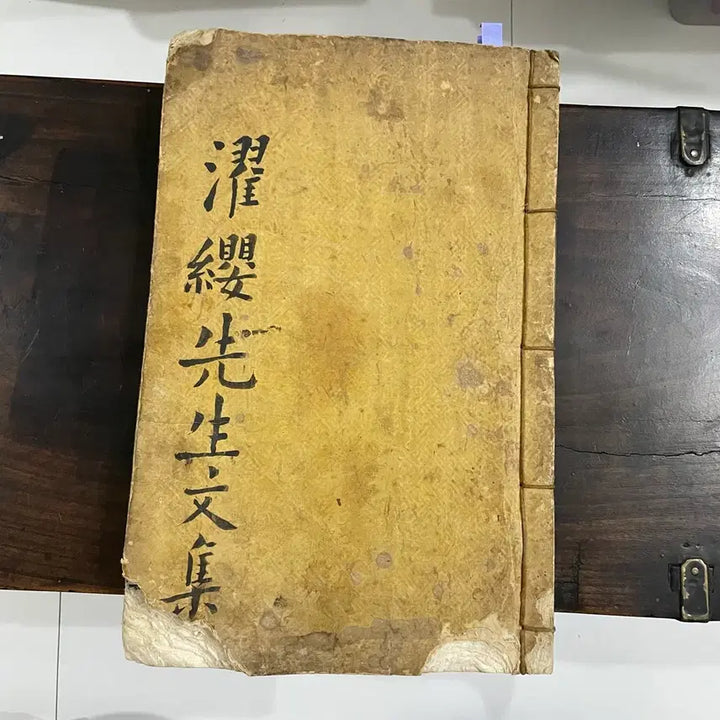 濯纓先生文集